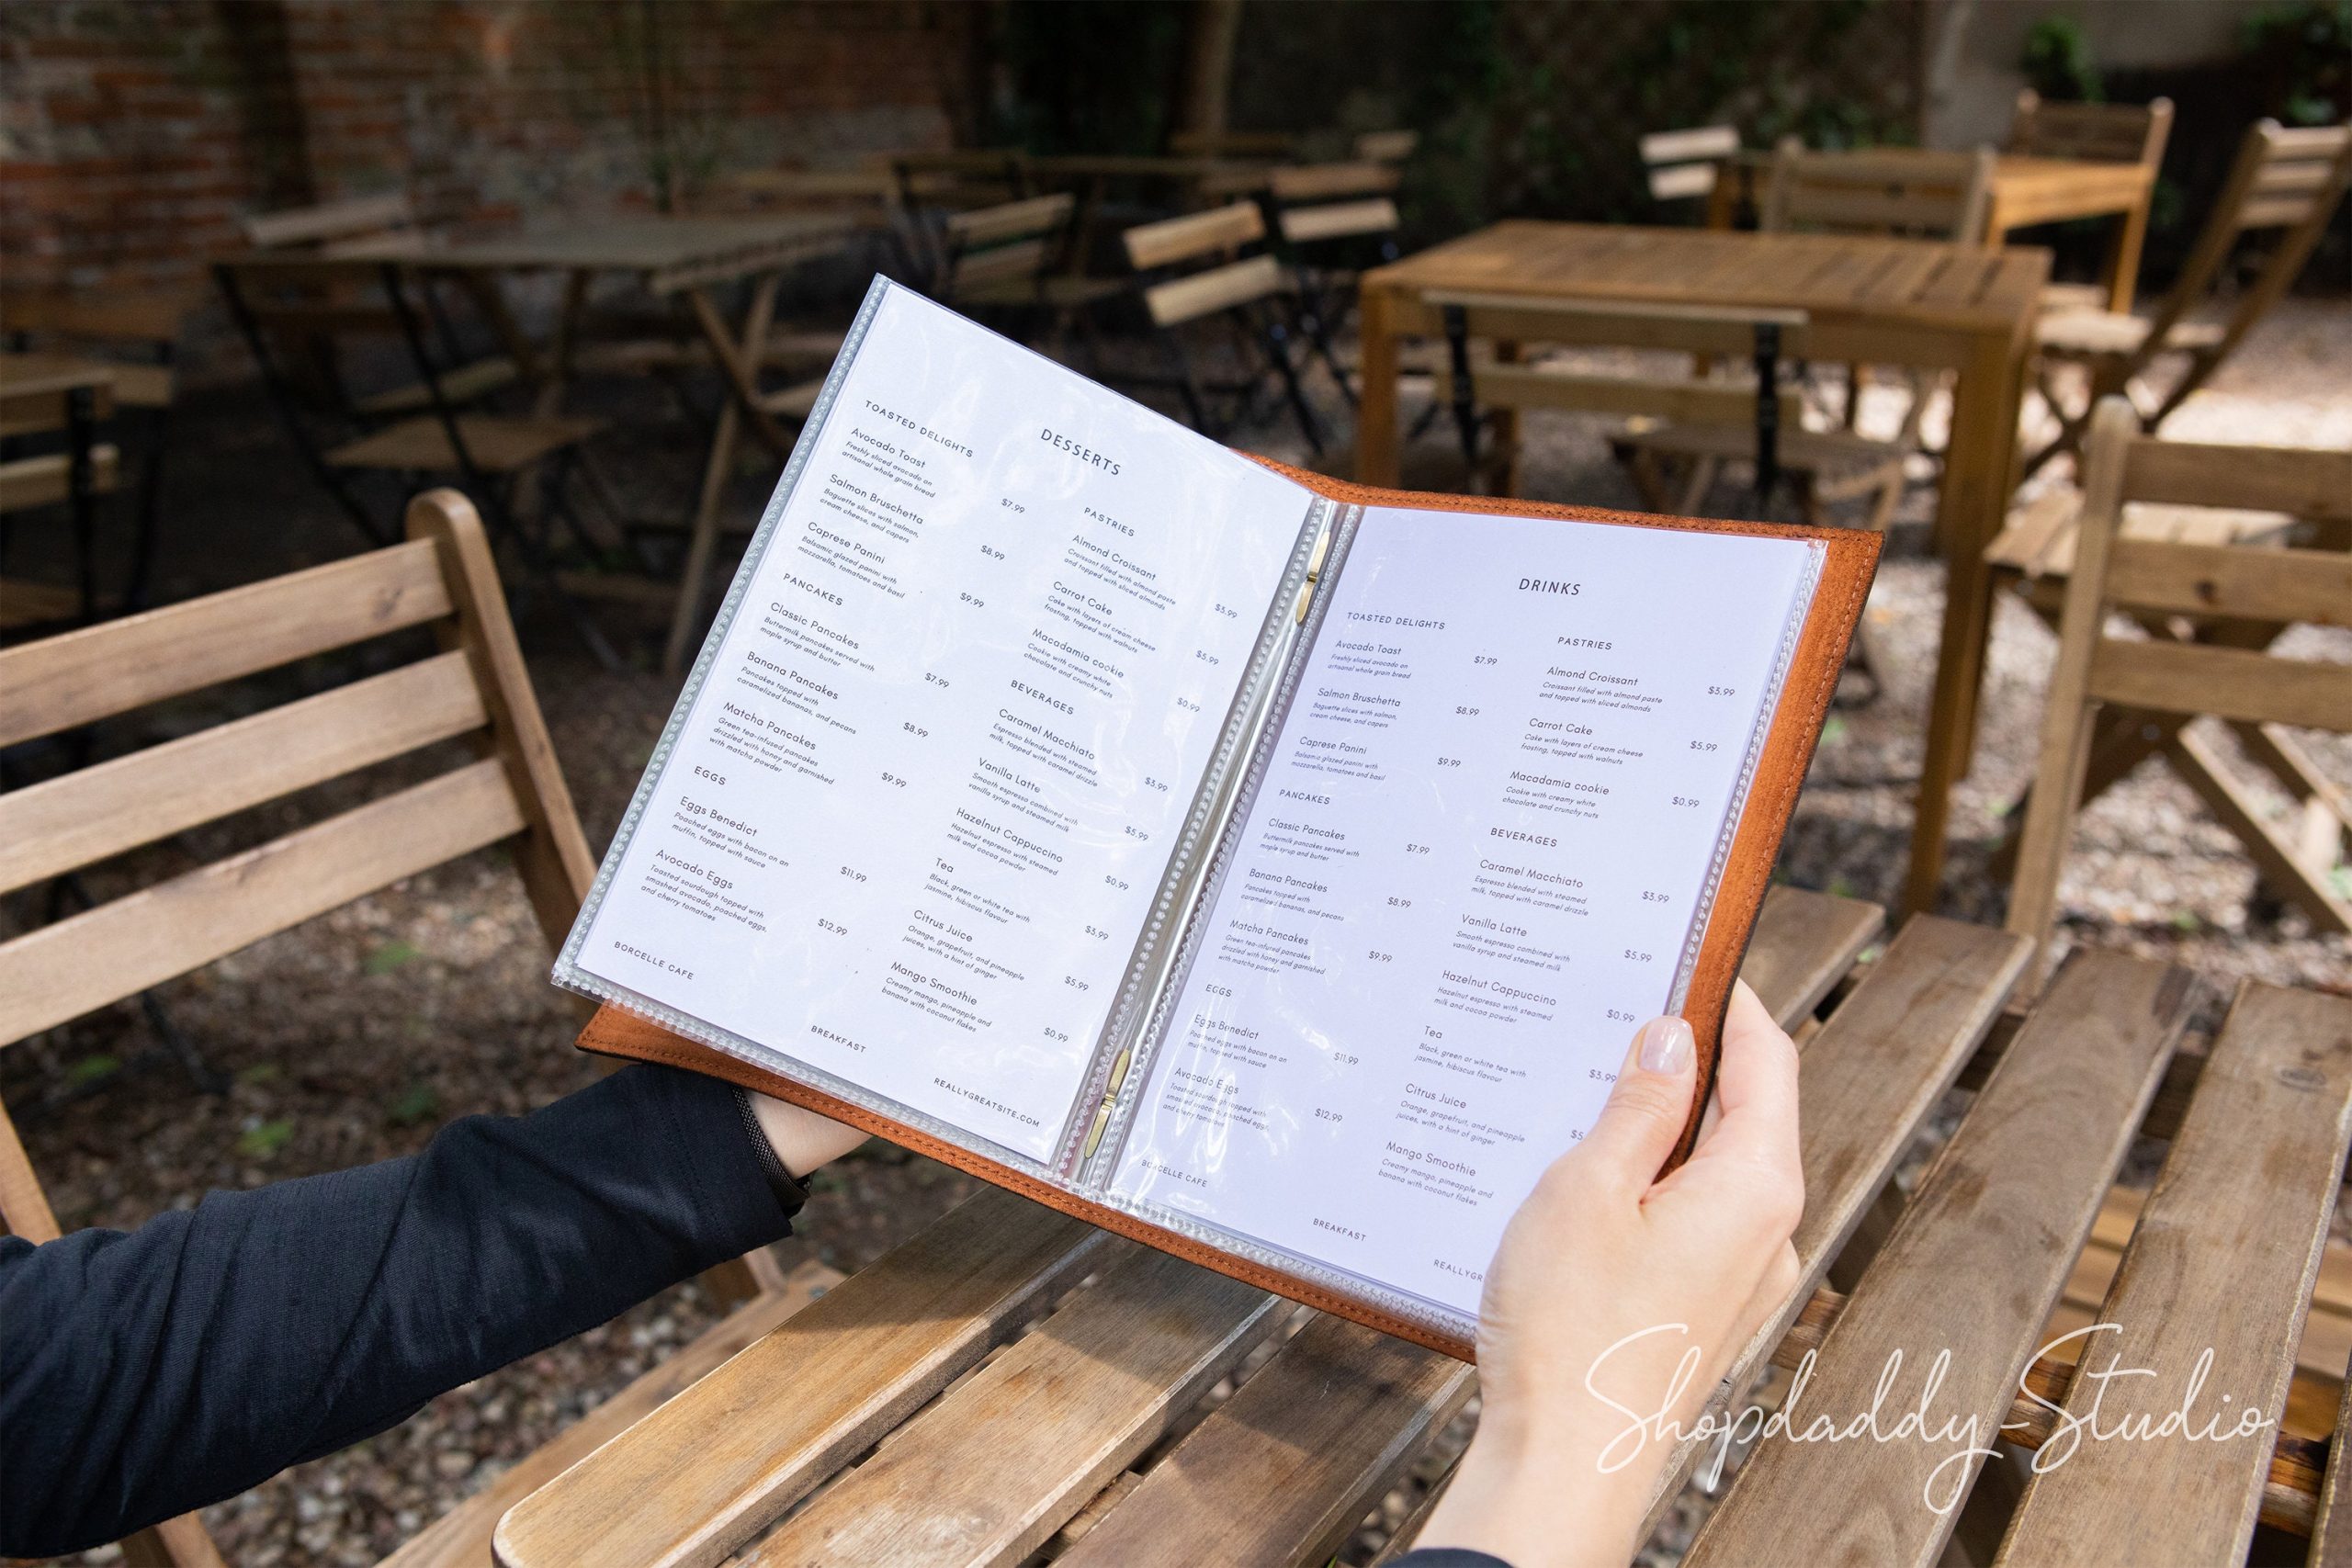 DESSERTS
TOASTED DELIGHTS
Avocado Toast
Freshly sliced avocado on
artisanal whole grain bread
$7.99
Salmon Bruschetta
Baguette slices with salmon,
cream cheese, and capers
$8.99
Caprese Panini
Balsamic glazed panini with
mozzarella, tomatoes and basil
$9.99
PANCAKES
Classic Pancakes
Buttermilk pancakes served with
maple syrup and butter
$7.99
Banana Pancakes
Pancakes topped with
caramelized bananas, and pecans
$8.99
Matcha Pancakes
Green tea-infused pancakes
drizzled with honey and garnished
with matcha powder
$9.99
EGGS
Eggs Benedict
Poached eggs with bacon on an
muffin, topped with sauce
$11.99
Avocado Eggs
Toasted sourdough topped with
smashed avocado, poached eggs,
and cherry tomatoes
$12.99
PASTRIES
Almond Croissant
Croissant filled with almond paste
and topped with sliced almonds
$3.99
Carrot Cake
Cake with layers of cream cheese
frosting, topped with walnuts
$5.99
Macadamia cookie
Cookie with creamy white
chocolate and crunchy nuts
$0.99
BEVERAGES
Caramel Macchiato
Espresso blended with steamed
milk, topped with caramel drizzle
$3.99
Vanilla Latte
Smooth espresso combined with
vanilla syrup and steamed milk
$5.99
Hazelnut Cappuccino
Hazelnut espresso with steamed
milk and cocoa powder
$0.99
Tea
Black, green or white tea with
jasmine, hibiscus flavour
$3.99
Citrus Juice
Orange, grapefruit, and pineapple
juices, with a hint of ginger
$5.99
Mango Smoothie
Creamy mango, pineapple and
banana with coconut flakes
$0.99
BORCELLE CAFE
BREAKFAST
REALLYGREATSITE.COM
DRINKS
TOASTED DELIGHTS
Avocado Toast
Freshly sliced avocado on
artisanal whole grain bread
$7.99
Salmon Bruschetta
Baguette slices with salmon,
cream cheese, and capers
$8.99
Caprese Panini
Balsamic glazed panini with
mozzarella, tomatoes and basil
$9.99
PANCAKES
Classic Pancakes
Buttermilk pancakes served with
maple syrup and butter
$7.99
Banana Pancakes
Pancakes topped with
caramelized bananas, and pecans
$8.99
Matcha Pancakes
Green tea-infused pancakes
drizzled with honey and garnished
with matcha powder
$9.99
EGGS
Eggs Benedict
Poached eggs with bacon on an
muffin, topped with sauce
$11.99
Avocado Eggs
Toasted sourdough topped with
smashed avocado, poached eggs,
and cherry tomatoes
$12.99
PASTRIES
Almond Croissant
Croissant filled with almond paste
and topped with sliced almonds
$3.99
Carrot Cake
Cake with layers of cream cheese
frosting, topped with walnuts
$5.99
Macadamia cookie
Cookie with creamy white
chocolate and crunchy nuts
$0.99
BEVERAGES
Caramel Macchiato
Espresso blended with steamed
milk, topped with caramel drizzle
$3.99
Vanilla Latte
Smooth espresso combined with
vanilla syrup and steamed milk
$5.99
Hazelnut Cappuccino
Hazelnut espresso with steamed
milk and cocoa powder
$0.99
Tea
Black, green or white tea with
jasmine, hibiscus flavour
$3.99
Citrus Juice
Orange, grapefruit, and pineapple
juices, with a hint of ginger
$5
Mango Smoothie
Creamy mango, pineapple and
banana with coconut flakes
BORCELLE CAFE
BREAKFAST
REALLYG
Shopdaddy-Studio